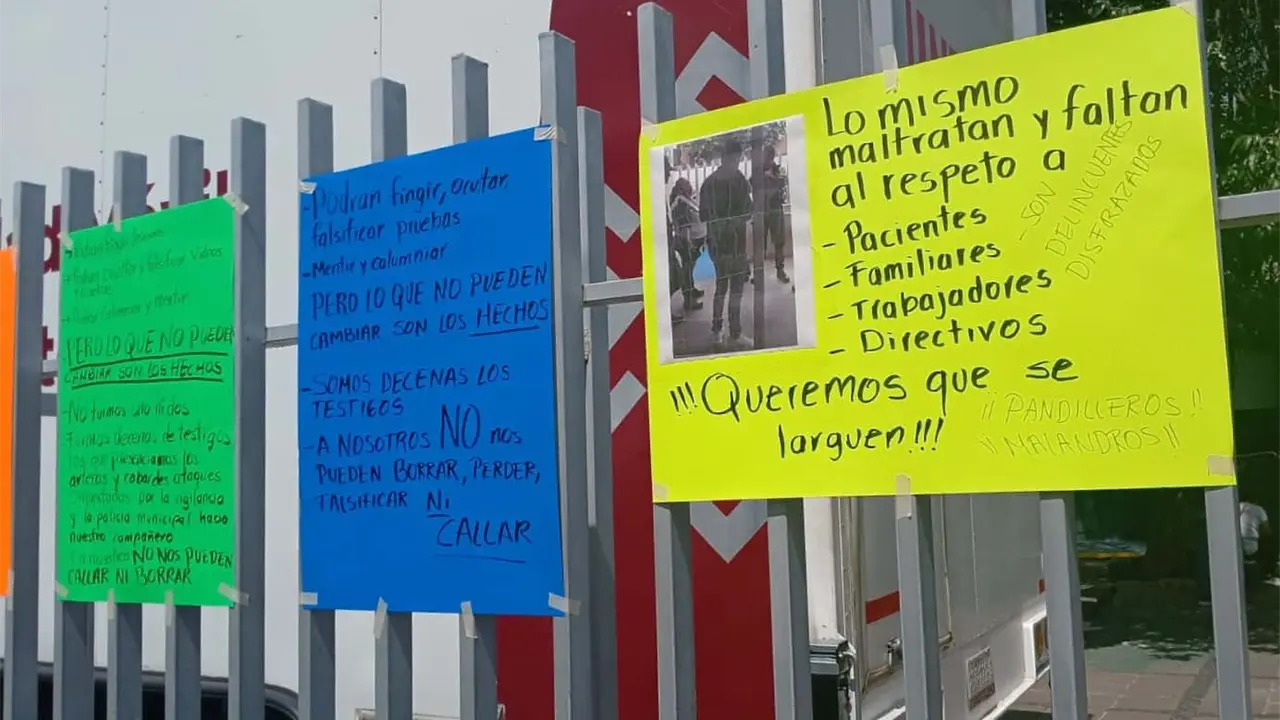 PERO LO QUE NO PUEDEN
CAMBIAR SON LOS HECHOS
- No fuimos
Fuimos decenas de testigos
los que presenciamos los
arteros y cobardes ataques
por la vigilancia
y la policia municipal hacia
nuestro compañero
NO NOS PUEDEN
CALLAR NI BORRAR
- Podran fingir, ocultar,
falsificar pruebas
- Mentir y calumniar
PERO LO QUE NO PUEDEN
CAMBIAR SON LOS HECHOS
- SOMOS DECENAS LOS
TESTIGOS
- A NOSOTROS NO nos
PUEDEN BORRAR, PERDER,
FALSIFICAR Ni
CALLAR
Lo mismo
maltratan y faltan
al respeto a
- Pacientes
- Familiares
- Trabajadores
- Directivos
- SON
DELINCUENTES
DISFRAZADOS
¡¡¡Queremos que se
larguen!!!
¡¡PANDILLEROS!!
¡¡MALANDROS!!